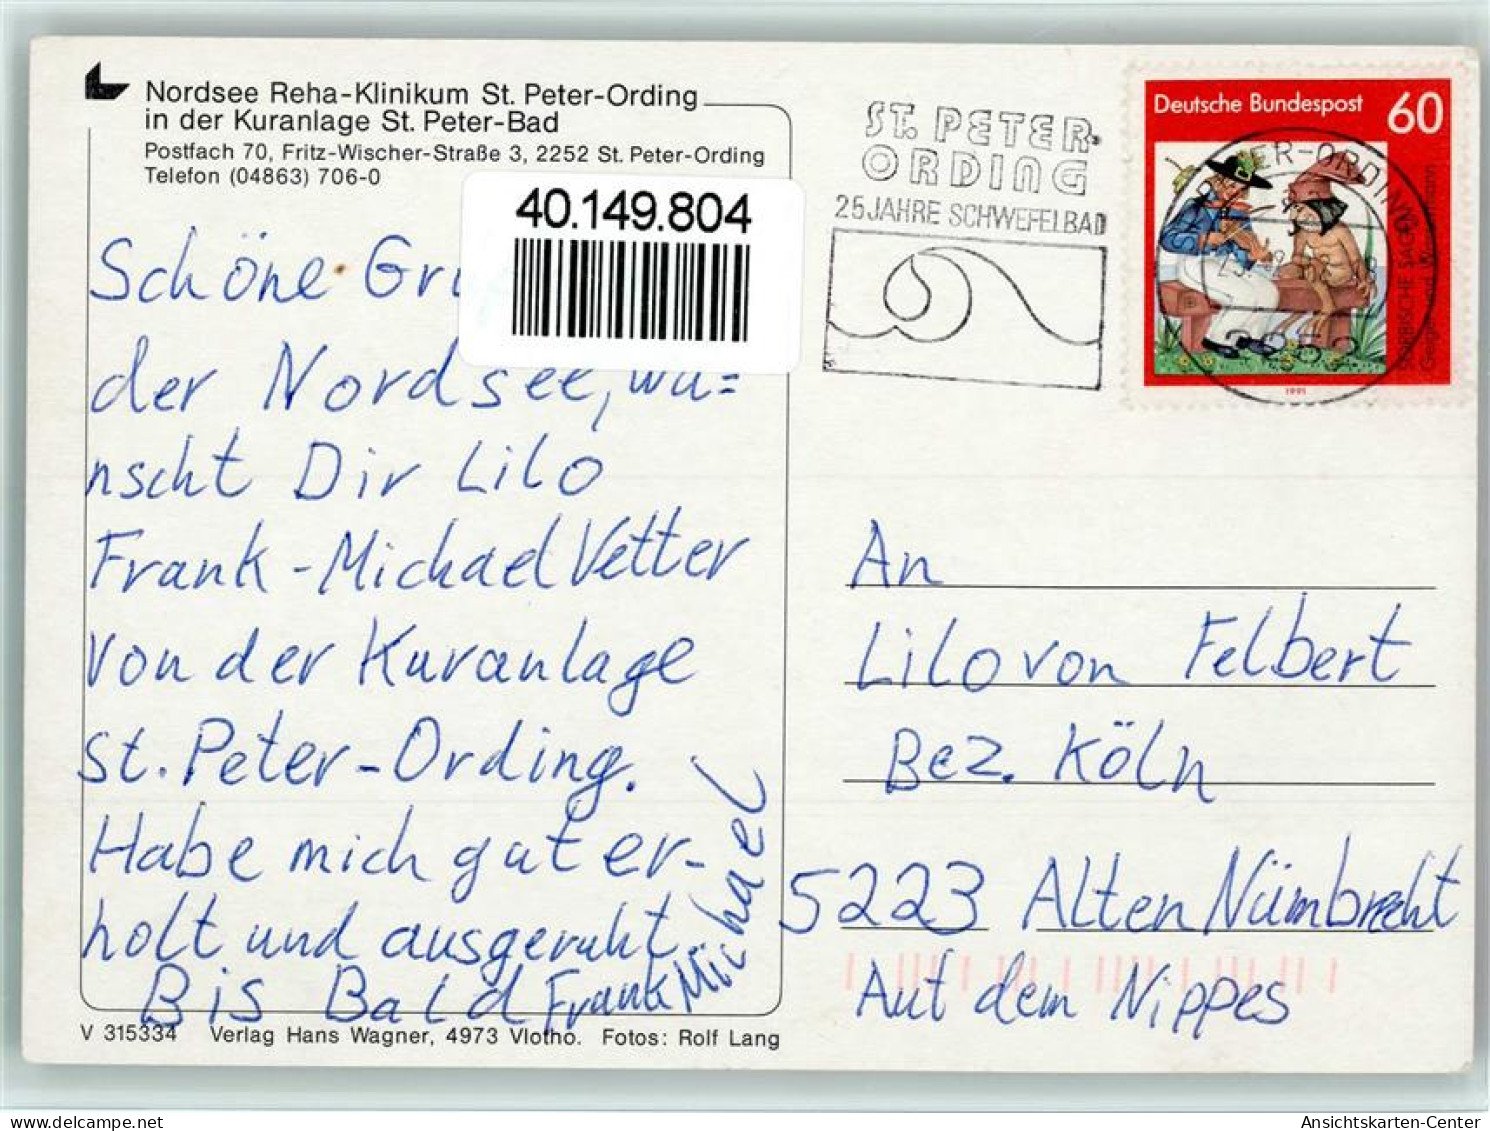 Nordsee Reha-Klinikum St. Peter-Ording
in der Kuranlage St. Peter-Bad
Postfach 70, Fritz-Wischer-Straße 3, 2252 St. Peter-Ording
Telefon (04863) 706-0
40.149.804
Schöne Gr
der Nordsee, wü=
nscht Dir Lilo
Frank-Michael Vetter
von der Kuranlage
St. Peter-Ording.
Habe mich gut er-
holt und ausgeruht.
Bis Bald Frank Michael
V 315334 Verlag Hans Wagner, 4973 Vlotho. Fotos: Rolf Lang
ST. PETER-
ORDING
25 JAHRE SCHWEFELBAD
Deutsche Bundespost 60
SORBISCHE SAGEN
Geiger und Wassermann
1991
An
Lilo von Felbert
Bez. Köln
5223 Alten Nümbrecht
Auf dem Nippes
Ansichtskarten-Center